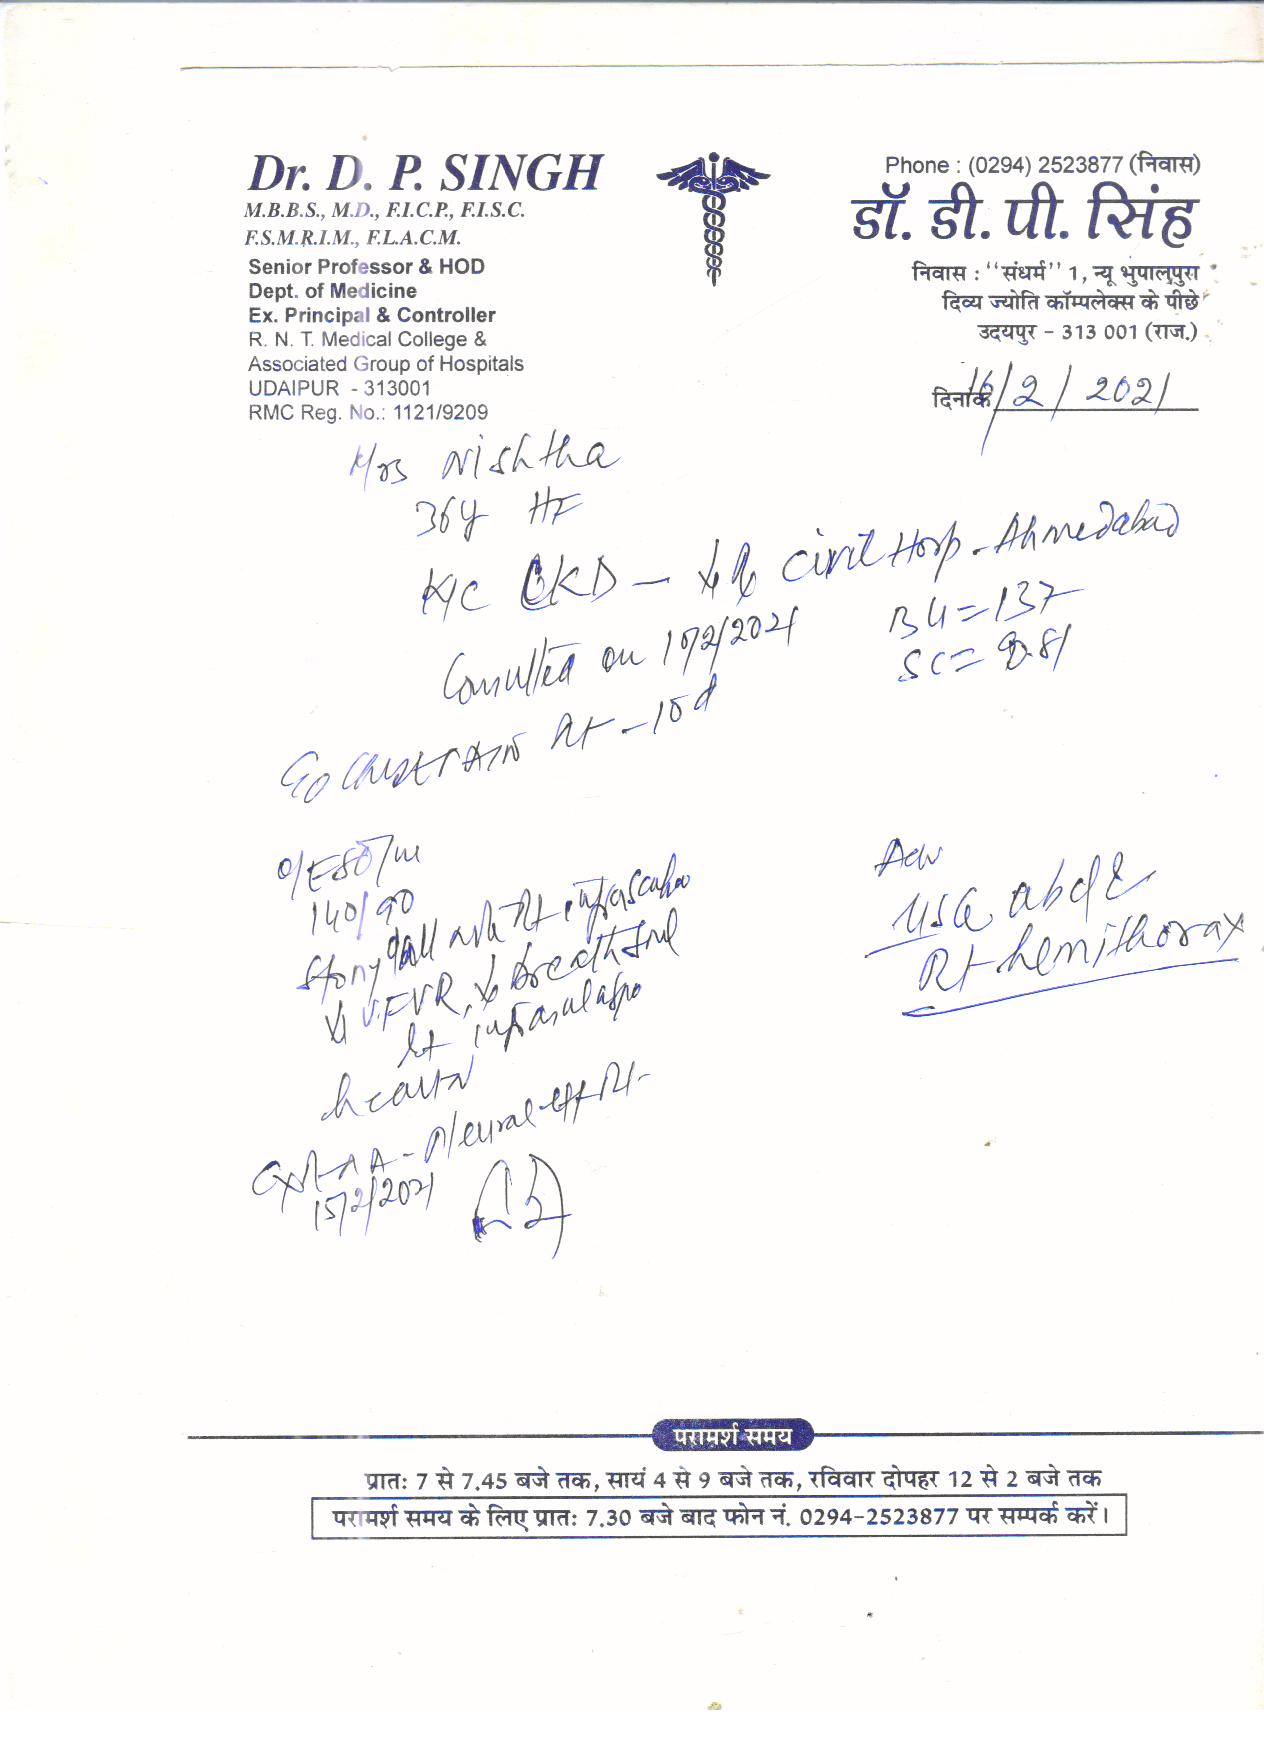 Dr. D. P. SINGH
M.B.B.S., M.D., F.I.C.P., F.I.S.C.
F.S.M.R.I.M., F.L.A.C.M.
Senior Professor & HOD
Dept. of Medicine
Ex. Principal & Controller
R. N. T. Medical College &
Associated Group of Hospitals
UDAIPUR - 313001
RMC Reg. No.: 1121/9209
Phone : (0294) 2523877 (निवास)
डॉ. डी. पी. सिंह
निवास : "संधर्म" 1, न्यू भुपालपुरा
दिव्य ज्योति कॉम्पलेक्स के पीछे
उदयपुर - 313 001 (राज.)
दिनांक 16/2/2021
Mrs Nishtha
36y HF
K/C CKD - Civil Hosp - Ahmedabad
Consulted on 15/2/2021
BU = 137
SC =
C/O CHEST PAIN Rt - 10d
O/E 80/m
140/90
Stony dull Rt infrascapular
↓ VF VR, ↓ breath
infrascapular
heart N
CXR - PA - Pleural eff Rt
15/2/2021
Adv
USG abd &
Rt hemithorax
परामर्श समय
प्रातः 7 से 7.45 बजे तक, सायं 4 से 9 बजे तक, रविवार दोपहर 12 से 2 बजे तक
परामर्श समय के लिए प्रातः 7.30 बजे बाद फोन नं. 0294-2523877 पर सम्पर्क करें।